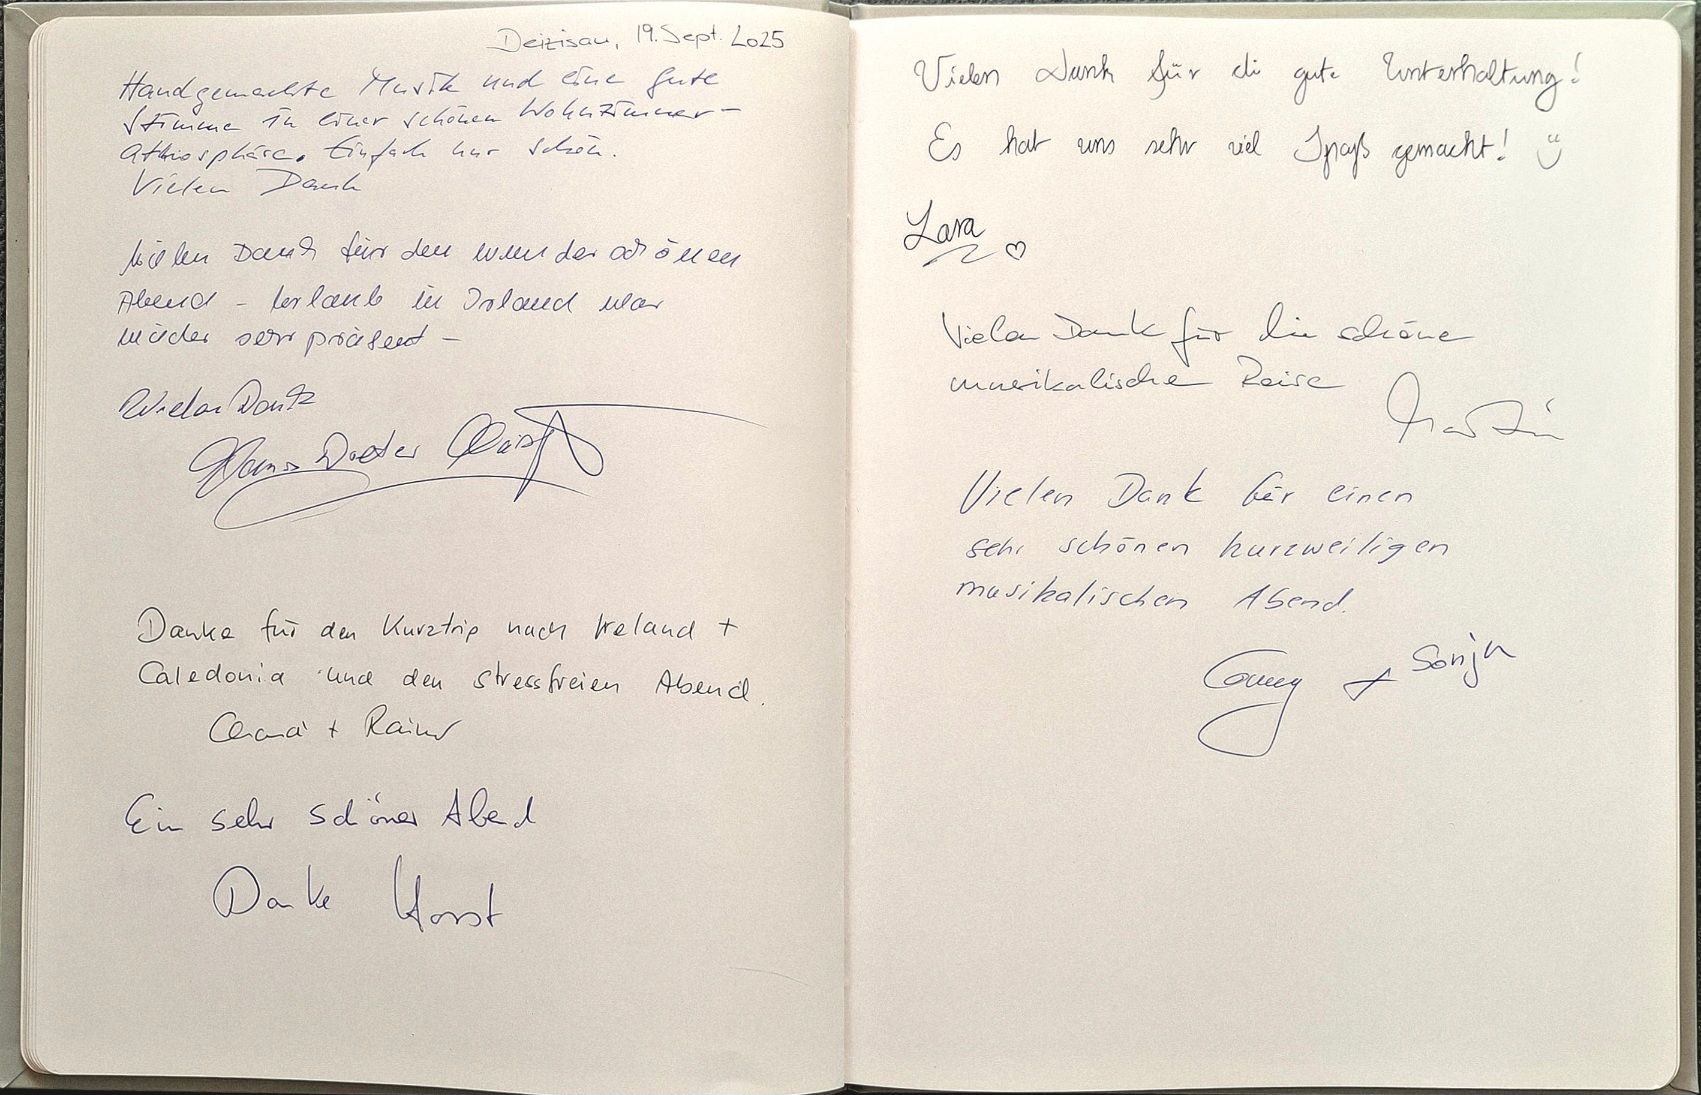 Deizisau, 19. Sept. 2025
Handgemachte Musik und eine gute
Stimme in einer schönen Wohnzimmer-
Atmosphäre. Einfach nur schön.
Vielen Dank
Vielen Dank für den wunderschönen
Abend – Urlaub in Irland war
wieder sehr präsent –
Vielen Dank
Hans Dieter
Danke für den Kurztrip nach Ireland +
Caledonia und den stressfreien Abend.
+ Rainer
Ein sehr schöner Abend
Danke Horst
Vielen Dank für di gute Unterhaltung!
Es hat uns sehr viel Spaß gemacht!
Lara
Vielen Dank für die schöne
musikalische Reise
Martin
Vielen Dank für einen
sehr schönen kurzweiligen
musikalischen Abend.
Conny + Sonja